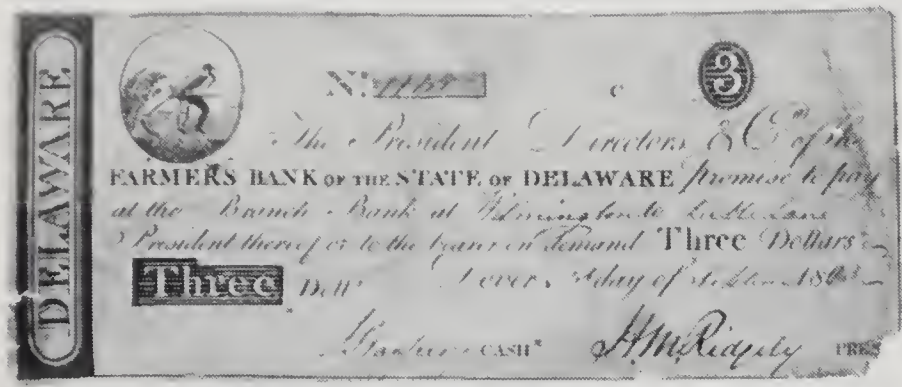 DELAWARE
Nº
C
3
The President Directors & Cº of the
FARMERS BANK OF THE STATE OF DELAWARE promise to pay
at the Branch Bank at Wilmington to
President thereof or to the bearer on demand Three Dollars
Three Dollˢ Dover, day of 180
CASHʳ H M Ridgely PRES